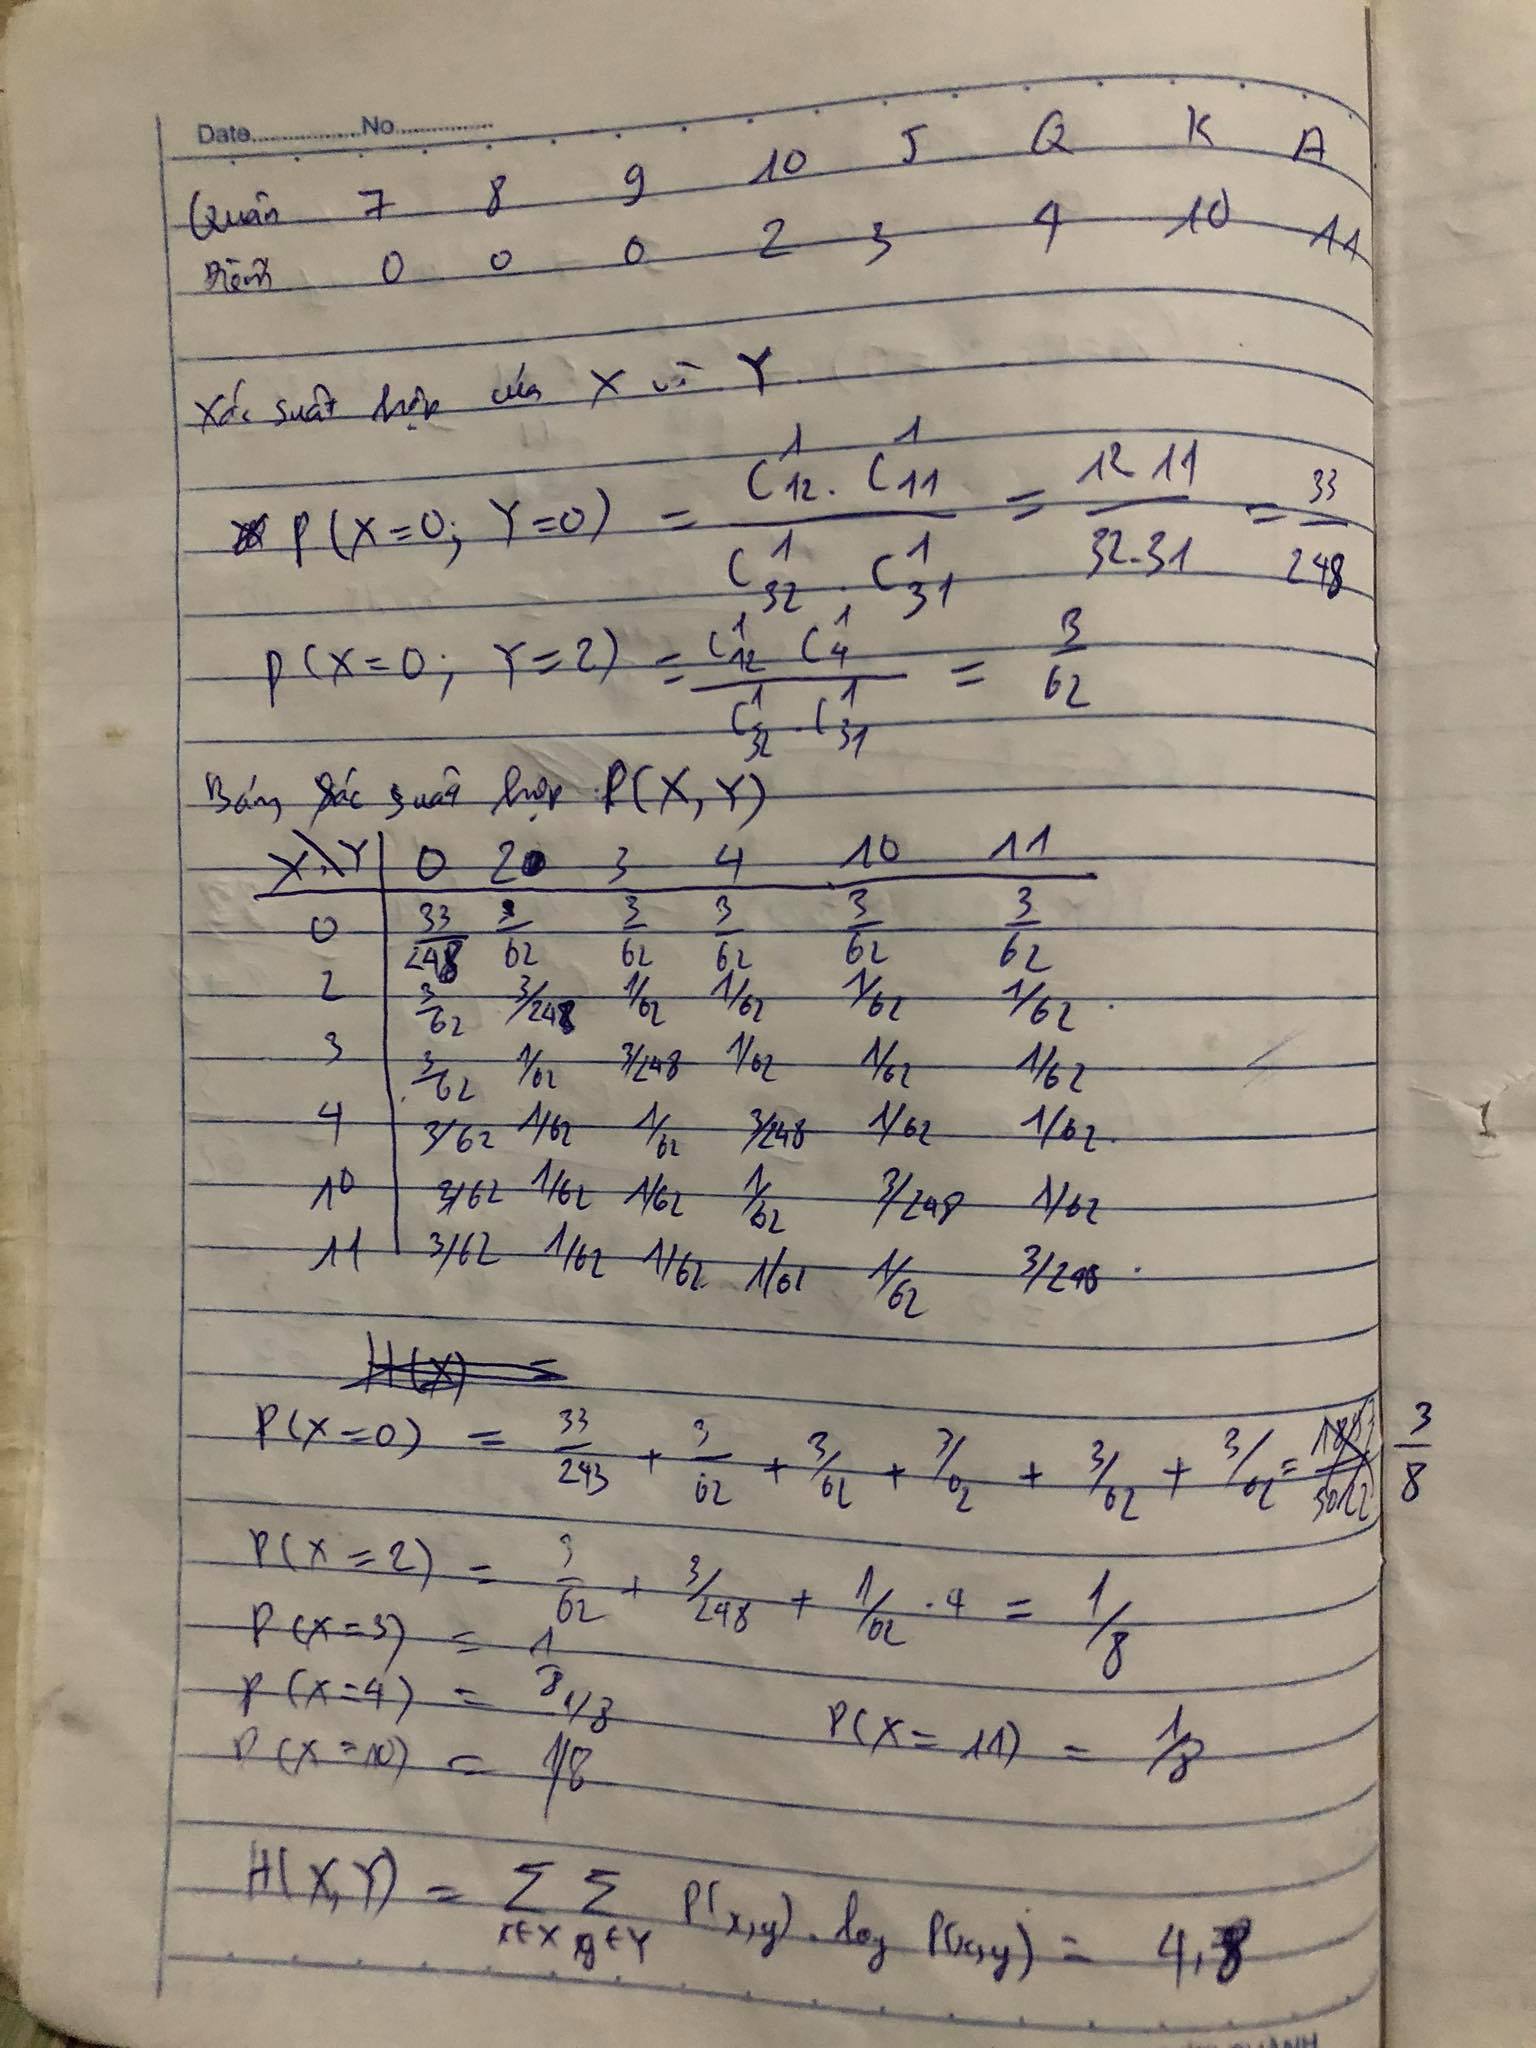 Date.................No.................
Quân 7 8 9 10 J Q K A
Điểm 0 0 0 2 3 4 10 11
Xác suất hợp của X và Y
P(X=0; Y=0) = C¹₁₂ . C¹₁₁ / C¹₃₂ . C¹₃₁ = 12 11 / 32.31 = 33/248
P(X=0; Y=2) = C¹₁₂ C¹₄ / C¹₃₂ . C¹₃₁ = 3/62
Bảng xác suất hợp P(X,Y)
X\Y 0 2 3 4 10 11
0 33/248 3/62 3/62 3/62 3/62 3/62
2 3/62 3/248 1/62 1/62 1/62 1/62
3 3/62 1/62 3/248 1/62 1/62 1/62
4 3/62 1/62 1/62 3/248 1/62 1/62
10 3/62 1/62 1/62 1/62 3/248 1/62
11 3/62 1/62 1/62 1/62 1/62 3/248
H(X) =
P(X=0) = 33/243 + 3/62 + 3/62 + 3/62 + 3/62 + 3/62 = 3/8
P(X=2) = 3/62 + 3/248 + 1/62 . 4 = 1/8
P(X=3) = 1/8
P(X=4) = 1/8 P(X=11) = 1/8
P(X=10) = 1/8
H(X,Y) = Σ x∈X Σ y∈Y P(x,y) . log P(x,y) = 4,8